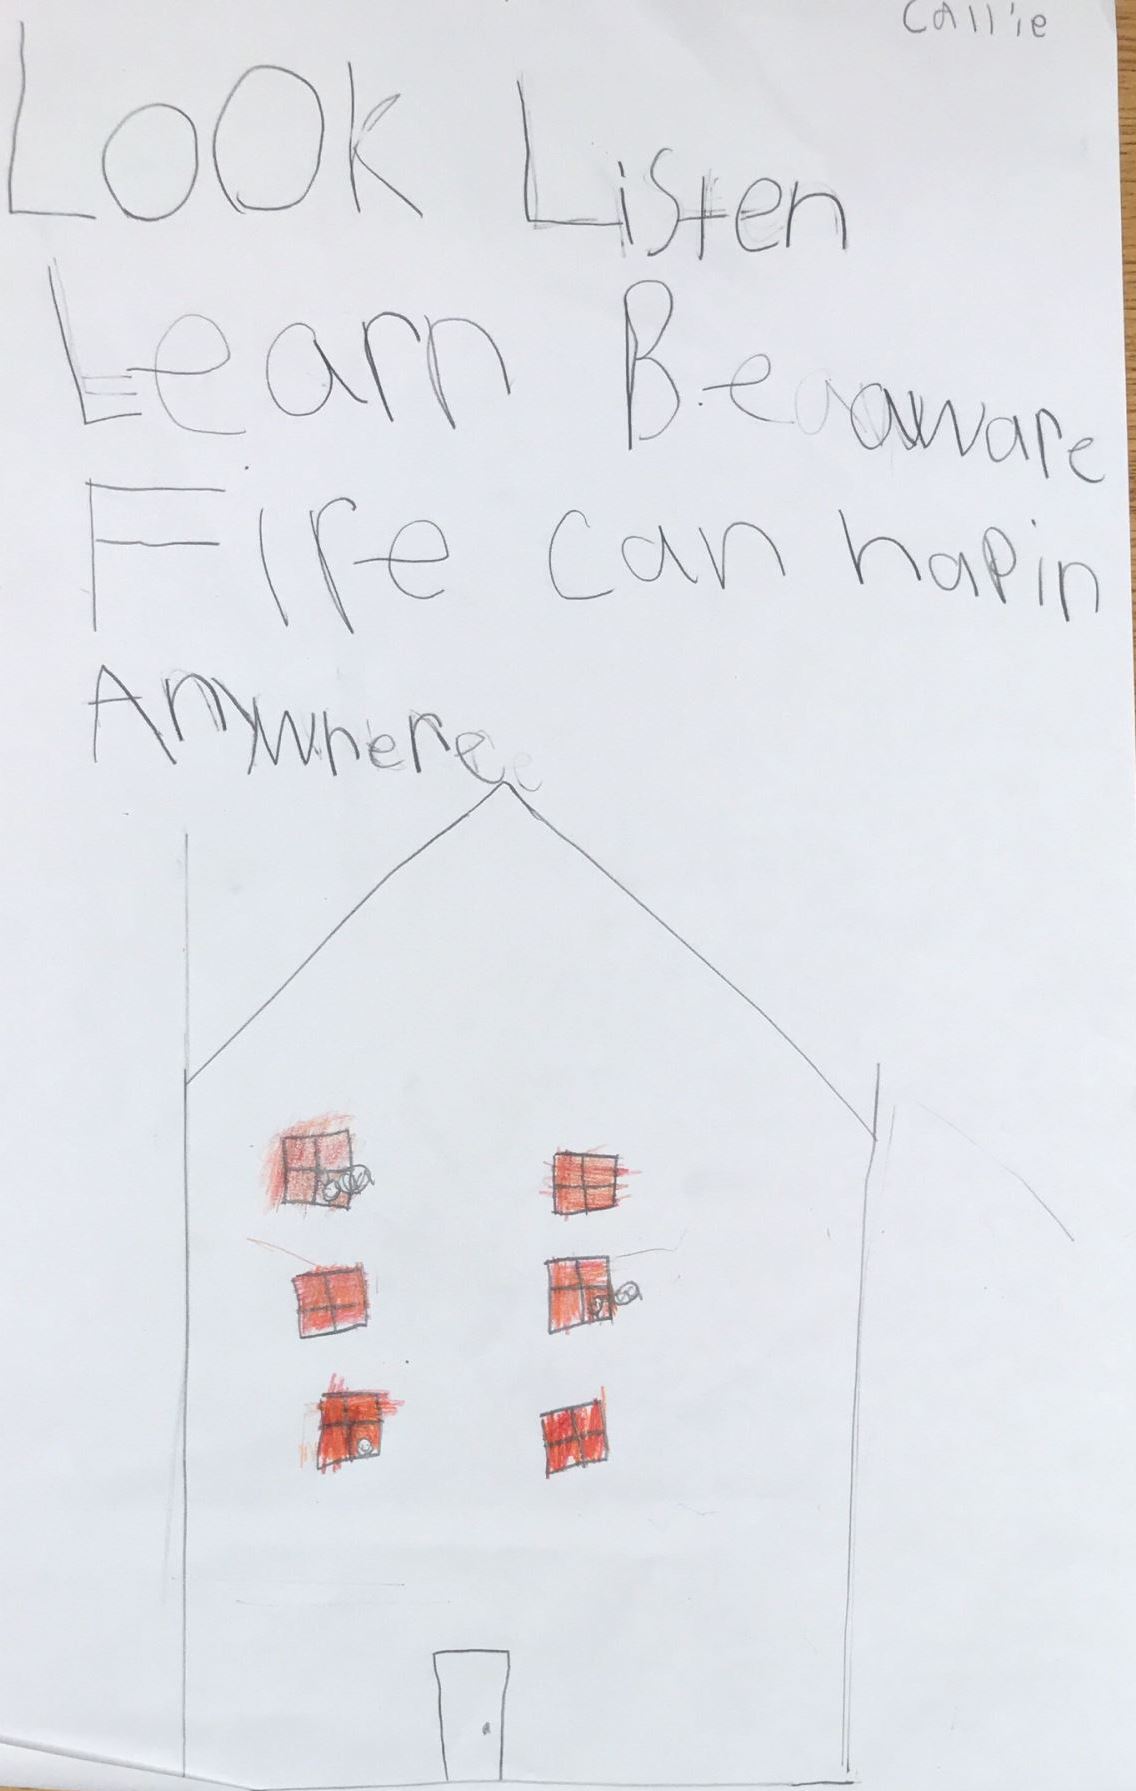 Callie
Look Listen
Learn Be aware
Fire can hapin
Anywhere